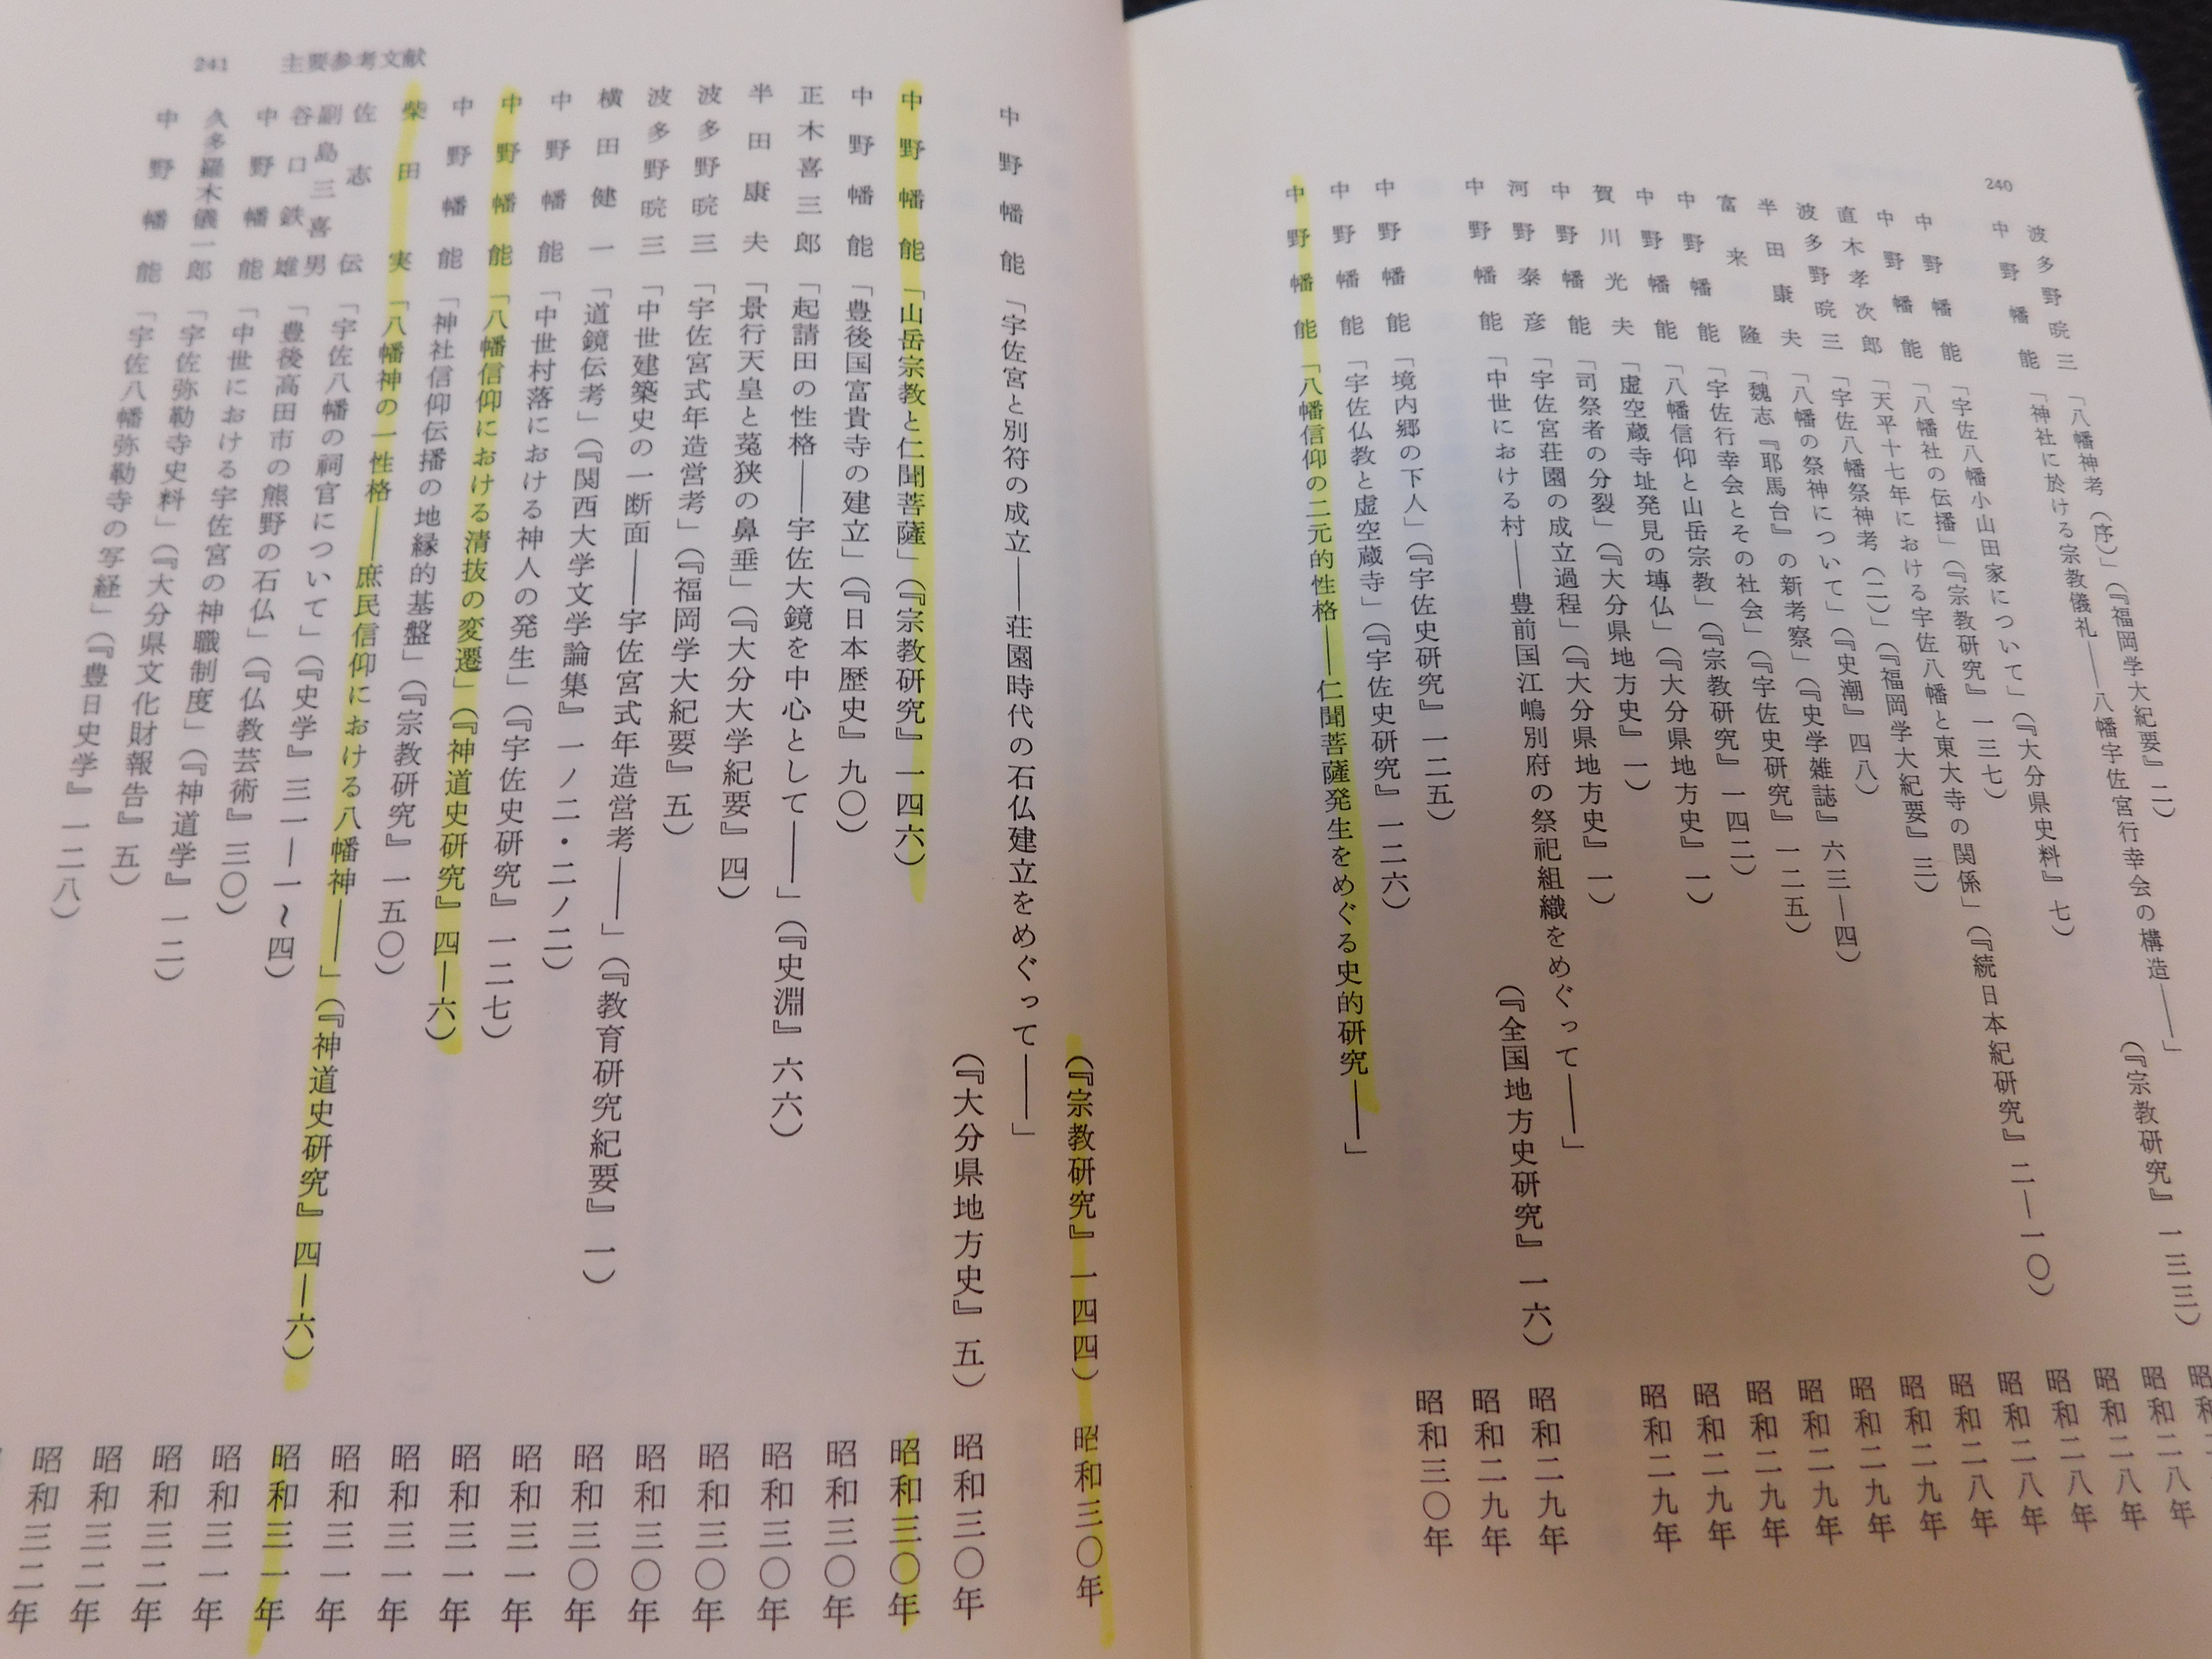 240
波多野晥三「八幡神考(序)」(『福岡学大紀要』二)
中野幡能「神社に於ける宗教儀礼――八幡宇佐宮行幸会の構造――」
(『宗教研究』一三三)
中野幡能「宇佐八幡小山田家について」(『大分県史料』七) 昭和二八年
中野幡能「八幡社の伝播」(『宗教研究』一三七) 昭和二八年
直木孝次郎「天平十七年における宇佐八幡と東大寺の関係」(『続日本紀研究』二―一〇) 昭和二八年
波多野晥三「宇佐八幡祭神考(二)」(『福岡学大紀要』三) 昭和二八年
半田康夫「八幡の祭神について」(『史潮』四八) 昭和二八年
富来隆「魏志『耶馬台』の新考察」(『史学雑誌』六三―四) 昭和二九年
中野幡能「宇佐行幸会とその社会」(『宇佐史研究』一二五) 昭和二九年
中野幡能「八幡信仰と山岳宗教」(『宗教研究』一四二) 昭和二九年
賀川光夫「虚空蔵寺址発見の塼仏」(『大分県地方史』一) 昭和二九年
中野幡能「司祭者の分裂」(『大分県地方史』一) 昭和二九年
河野泰彦「宇佐宮荘園の成立過程」(『大分県地方史』一) 昭和二九年
中野幡能「中世における村――豊前国江嶋別府の祭祀組織をめぐって――」
(『全国地方史研究』一六) 昭和二九年
中野幡能「境内郷の下人」(『宇佐史研究』一二五) 昭和二九年
中野幡能「宇佐仏教と虚空蔵寺」(『宇佐史研究』一二六) 昭和三〇年
中野幡能「八幡信仰の二元的性格――仁聞菩薩発生をめぐる史的研究――」
(『宗教研究』一四四) 昭和三〇年
中野幡能「宇佐宮と別符の成立――荘園時代の石仏建立をめぐって――」
(『大分県地方史』五) 昭和三〇年
中野幡能「山岳宗教と仁聞菩薩」(『宗教研究』一四六) 昭和三〇年
中野幡能「豊後国富貴寺の建立」(『日本歴史』九〇) 昭和三〇年
正木喜三郎「起請田の性格――宇佐大鏡を中心として――」(『史淵』六六) 昭和三〇年
半田康夫「景行天皇と菟狭の鼻垂」(『大分大学紀要』四) 昭和三〇年
波多野晥三「宇佐宮式年造営考」(『福岡学大紀要』五) 昭和三〇年
波多野晥三「中世建築史の一断面――宇佐宮式年造営考――」(『教育研究紀要』一) 昭和三〇年
横田健一「道鏡伝考」(『関西大学文学論集』一ノ二・二ノ二) 昭和三一年
中野幡能「中世村落における神人の発生」(『宇佐史研究』一二七) 昭和三一年
中野幡能「八幡信仰における清抜の変遷」(『神道史研究』四―六) 昭和三一年
中野幡能「神社信仰伝播の地縁的基盤」(『宗教研究』一五〇) 昭和三一年
柴田実「八幡神の一性格――庶民信仰における八幡神――」(『神道史研究』四―六) 昭和三一年
佐志伝「宇佐八幡の祠官について」(『史学』三一―一~四) 昭和三一年
副島三喜男
谷口鉄雄「豊後高田市の熊野の石仏」(『仏教芸術』三〇) 昭和三二年
中野幡能「中世における宇佐宮の神職制度」(『神道学』一二) 昭和三二年
久多羅木儀一郎「宇佐弥勒寺史料」(『大分県文化財報告』五) 昭和三二年
中野幡能「宇佐八幡弥勒寺の写経」(『豊日史学』一二八)
241 主要参考文献